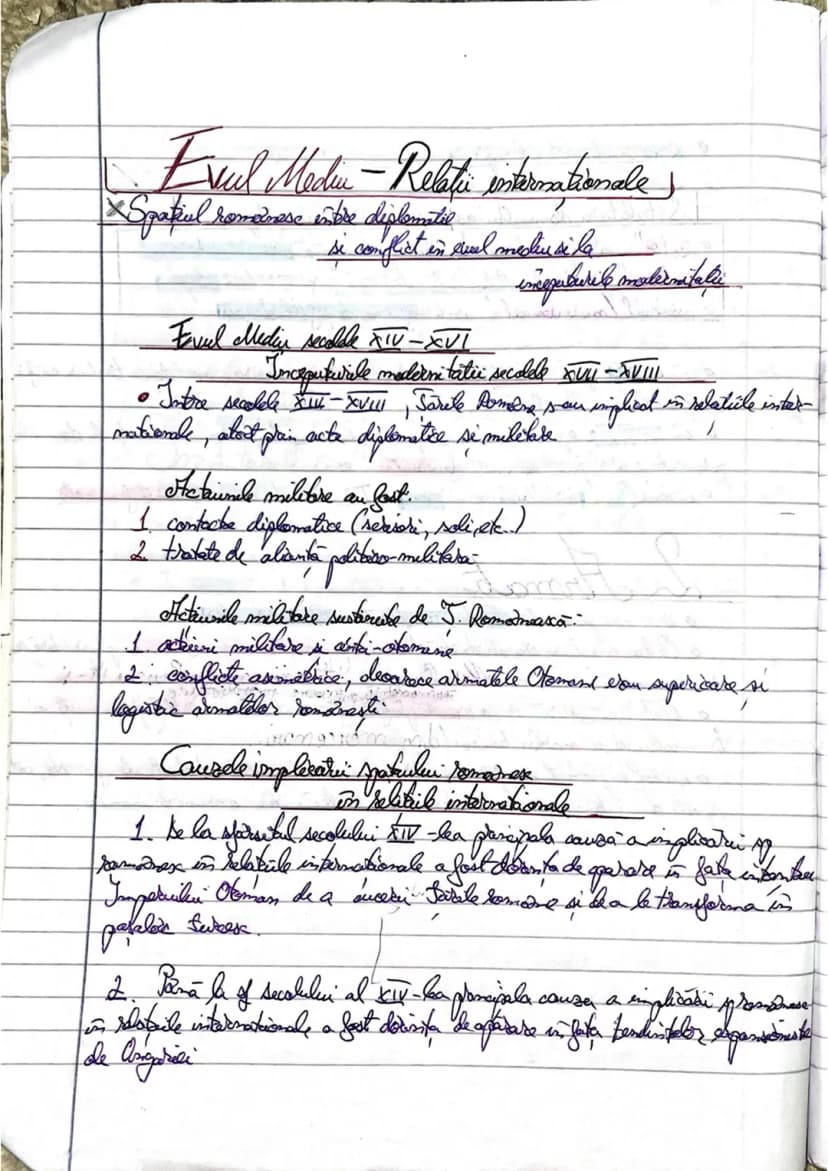 Evul Mediu – Relații internaționale
Spațiul românesc între diplomatie
si conflict in evul mediu si la
inceputurile modernitatii
Evul Mediu secolele XIV – XVI
Inceputurile modernitatii secolele XVII – XVIII
• Intre secolele – XVIII, Tarile Române s-au implicat in relatiile inter-
nationale, atât prin acte diplomatice si militare
Actiunile militare au fost.
1. contacte diplomatice (scrisori, soli, etc..)
2. tratate de alianță politico-militară
Actiunile militare sustinute de T. Românească:
1. actiuni militare si anti-otomane
2. conflicte asimetrice, deoarece armatele Otomane erau superioare și
logistic armatelor românești
Cauzele implicarii spatiului românesc
in relatiile internationale
1. De la sfarsitul secolului XIV -lea principala cauză a implicarii sp
românesc in relatiile internationale a fost dorinta de aparare in fata
Imperiului Otoman de a cuceri Tarile române si de a le transforma in
pașalâc turcesc.
2. Până la sf secolului al XIV-lea principala cauza a implicării sp românesc
in relatiile internationale a fost dorința de apărare in fața tendintelor expansioniste
de Ungariei